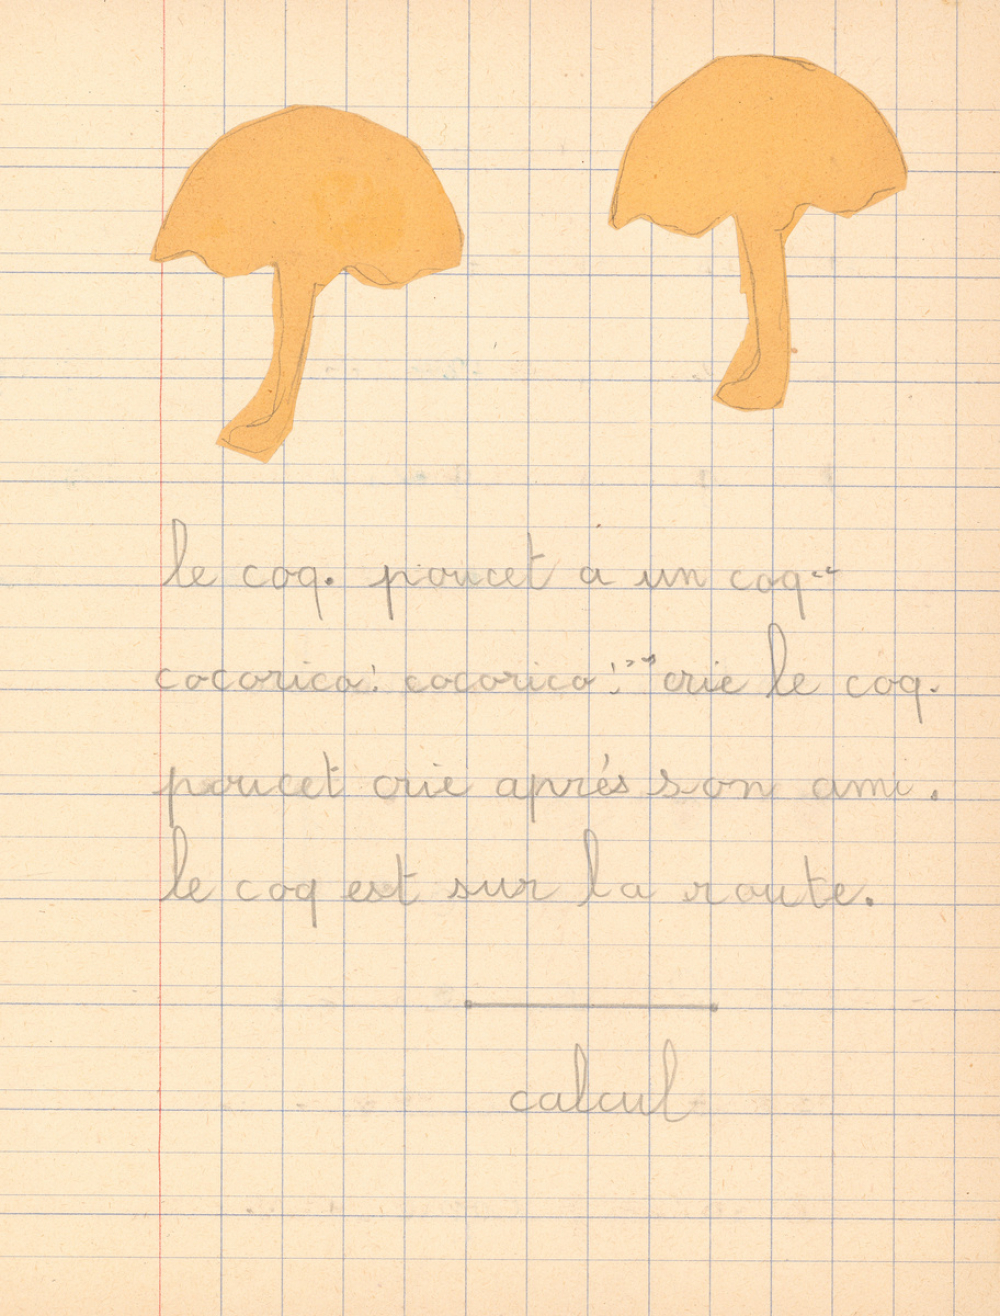 le coq. poucet a un coq..
cocorico! cocorico!" crie le coq.
poucet crie aprés son ami.
le coq est sur la route.
calcul